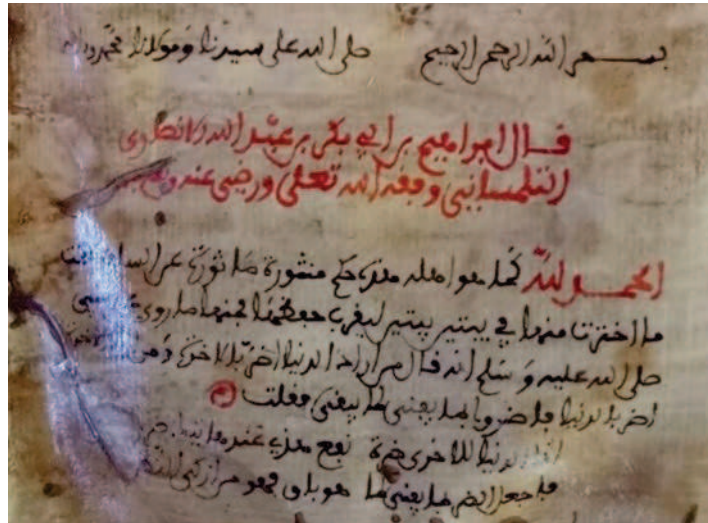 بسم الله الرحمن الرحيم صلى الله على سيدنا ومولانا محمد وءاله
قال ابراهيم بن ابي بكر بن عبد الله الانصاري
التلمساني وفقه الله تعلى ورضي عنه
الحمد لله كما هو اهله هذه حكم منثورة ماثورة عن
ما اخترت منها في بيتين بيتين ليقرب حفظها فمنها ما روي عن النبي
صلى الله عليه وسلم انه قال من اراد الدنيا اضر بالاخرة ومن
اضر بالدنيا فاضروا بما يفنى لما يبقى فقلت
الدنيا للاخرى ضرة نفع هذي عند
فاجعل الضر بما يفنى لما هو باق فهو من ازكى